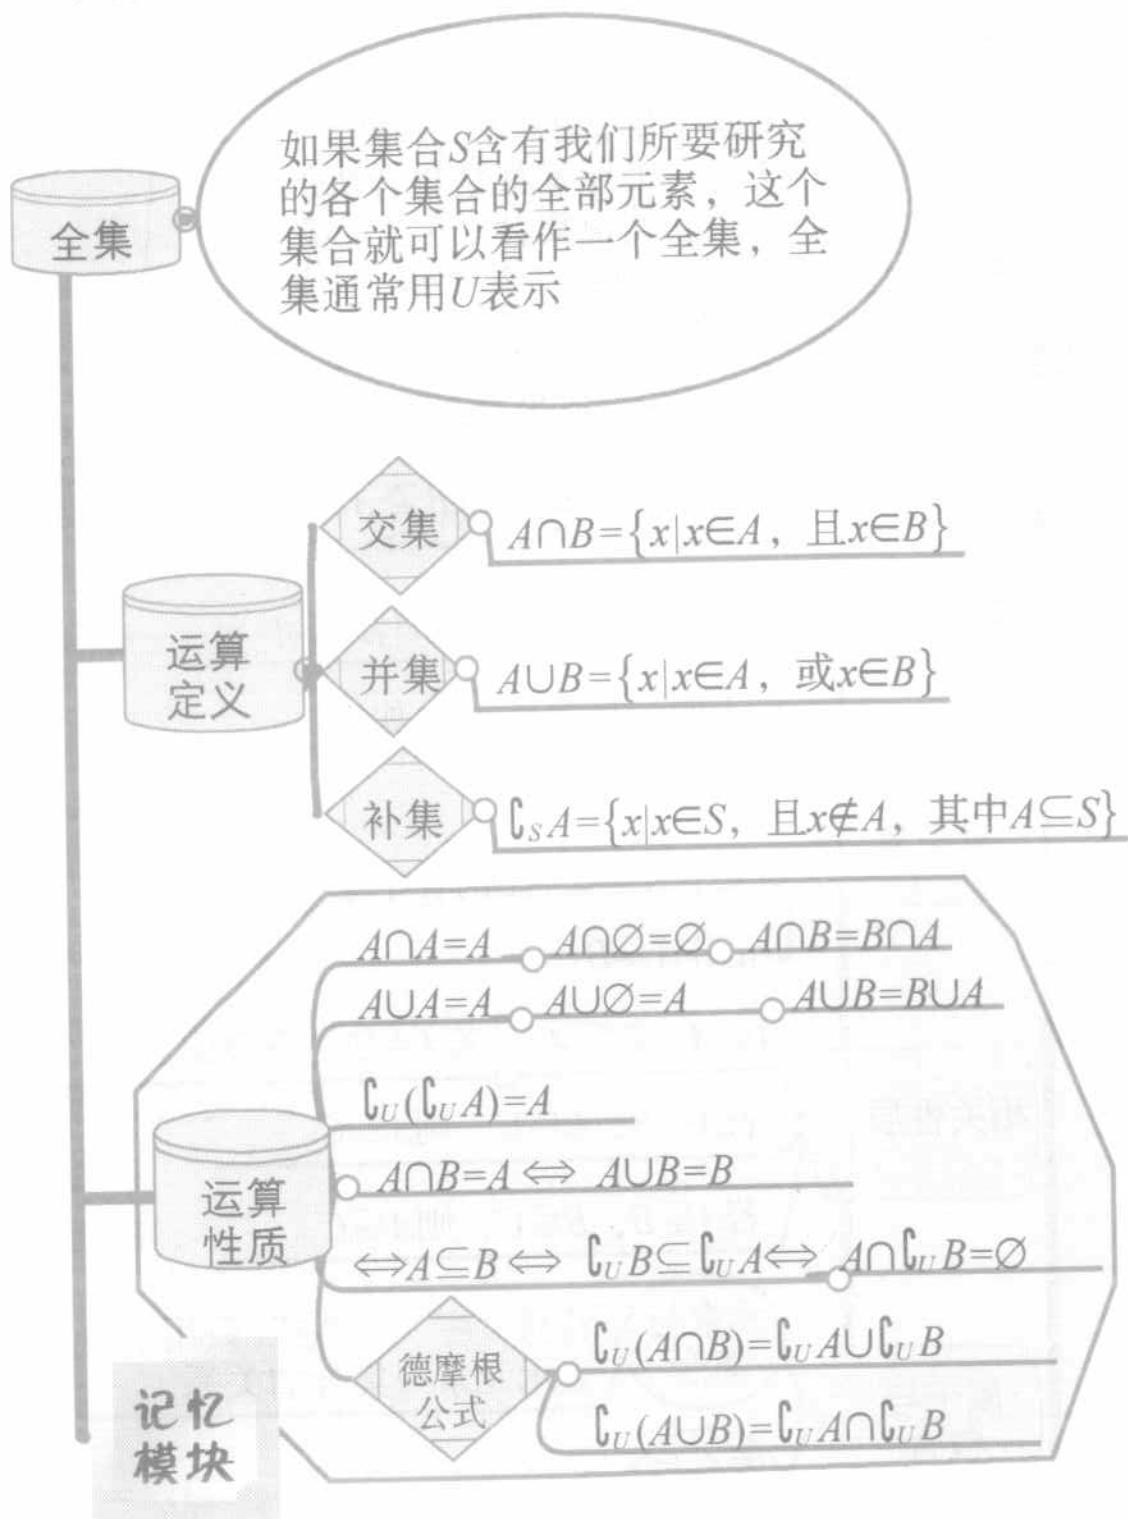 全集
如果集合S含有我们所要研究
的各个集合的全部元素，这个
集合就可以看作一个全集，全
集通常用U表示
运算
定义
交集
A∩B={x|x∈A，且x∈B}
并集
A∪B={x|x∈A，或x∈B}
补集
∁_S A={x|x∈S，且x∉A，其中A⊆S}
运算
性质
A∩A=A A∩∅=∅ A∩B=B∩A
A∪A=A A∪∅=A A∪B=B∪A
∁_U(∁_U A)=A
A∩B=A⇔ A∪B=B
⇔A⊆B⇔ ∁_U B⊆∁_U A⇔ A∩∁_U B=∅
德摩根
公式
∁_U(A∩B)=∁_U A∪∁_U B
∁_U(A∪B)=∁_U A∩∁_U B
记忆
模块